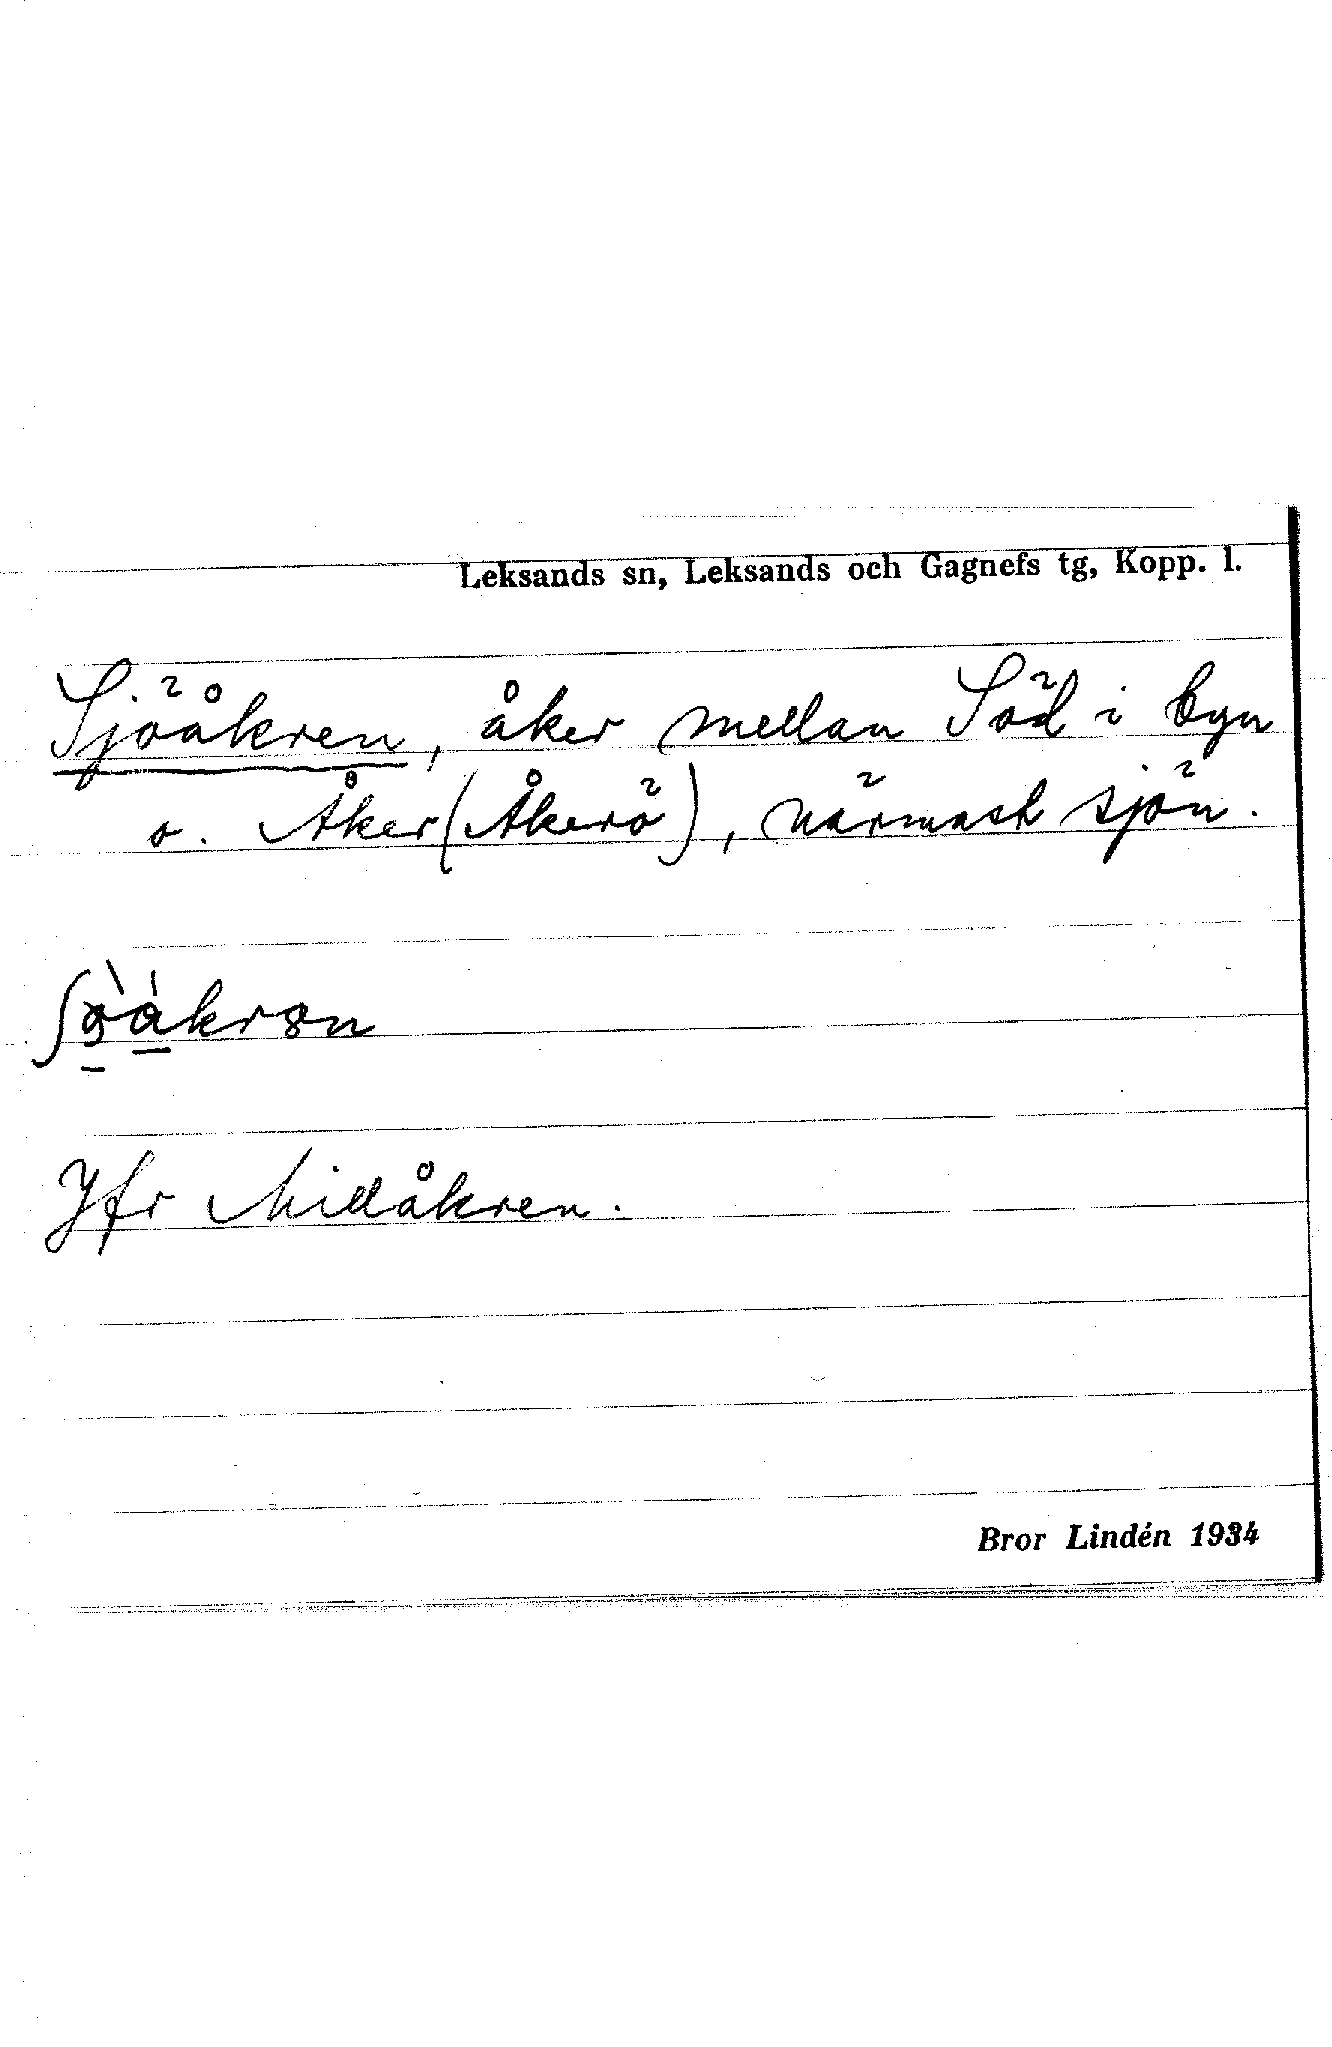 Leksands sn, Leksands och Gagnefs tg, Kopp. l.
Sjöåkren, åker mellan Söd i byn
o. Åker (Åkerö), närmast sjön.
Jfr Midåkren.
Bror Lindén 1934